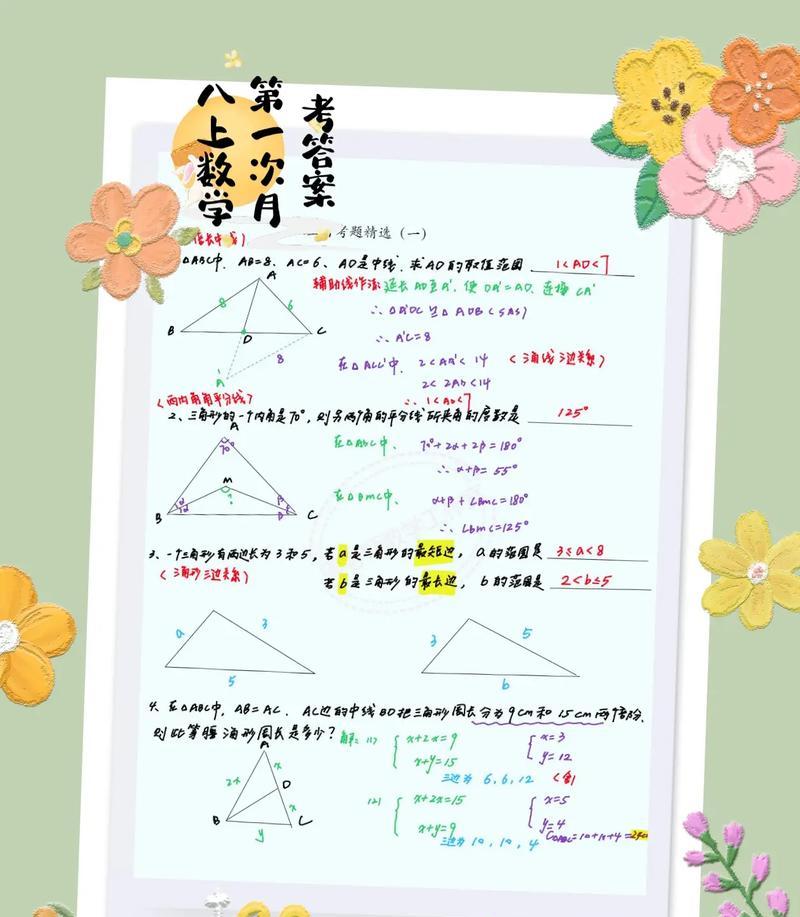 八上数学
第一次月
考答案
考题精选（一）
△ABC中，AB=8、AC=6、AD是中线，求AD的取值范围 1<AD<7
辅助线作法：延长AD至A'，使DA'=AD，连接CA'
∴ △A'DC≌△ADB（SAS）
∴ A'C=8
在△ACC'中，2<AA'<14 （三角线三边关系）
2<2AD<14
∴ 1<AD<7
A
8
6
B
D
C
8
A'
（两内角角平分线）
2、三角形的一个内角是70°，则另两个角的平分线所夹角的度数是 125°
在△ABC中， 70°+2α+2β=180°
∴ α+β=55°
在△BMC中， α+β+∠BMC=180°
∴ ∠BMC=125°
A
70°
M
?
α
α
β
β
B
C
3、一个三角形有两边长为3和5，若a是三角形的最短边，a的范围是 3≤a<8
（三角形三边关系）
若b是三角形的最长边，b的范围是 2<b≤5
a
3
5
3
5
b
4、在△ABC中，AB=AC，AC边的中线BD把三角形周长分为9cm和15cm两个部分，
则此等腰三角形周长是多少？
解：(1) { x+2x=9 { x=3
x+y=15 y=12
三边为 6，6，12 （舍）
(2) { x+2x=15 { x=5
x+y=9 y=4
三边为 10，10，4 C△ABC=10+10+4=24cm
A
2x
x
D
x
B
C
y